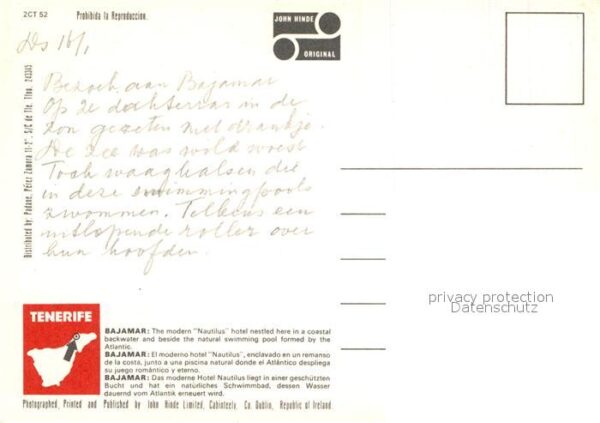 2CT 52
Prohibida la Reproduccion.
JOHN HINDE
ORIGINAL
Ds 16/1
Bezoek aan Bajamar
Op 2e dochterras in de
zon gezeten met drankje.
De zee was wild woest
Toch waaghalsen die
in deze swimmingpools
zwommen. Telkens een
uitlopende roller over
hun hoofden.
Distributed by: Padane, Pérez Zamora 11-2°. S/C de Tfe. Tfno. 243345
privacy protection
Datenschutz
TENERIFE
BAJAMAR: The modern "Nautilus" hotel nestled here in a coastal
backwater and beside the natural swimming pool formed by the
Atlantic.
BAJAMAR: El moderno hotel "Nautilus", enclavado en un remanso
de la costa, junto a una piscina natural donde el Atlántico despliega
su juego romántico y eterno.
BAJAMAR: Das moderne Hotel Nautilus liegt in einer geschützten
Bucht und hat ein natürliches Schwimmbad, dessen Wasser
dauernd vom Atlantik erneuert wird.
Photographed, Printed and Published by John Hinde Limited, Cabinteely, Co. Dublin, Republic of Ireland